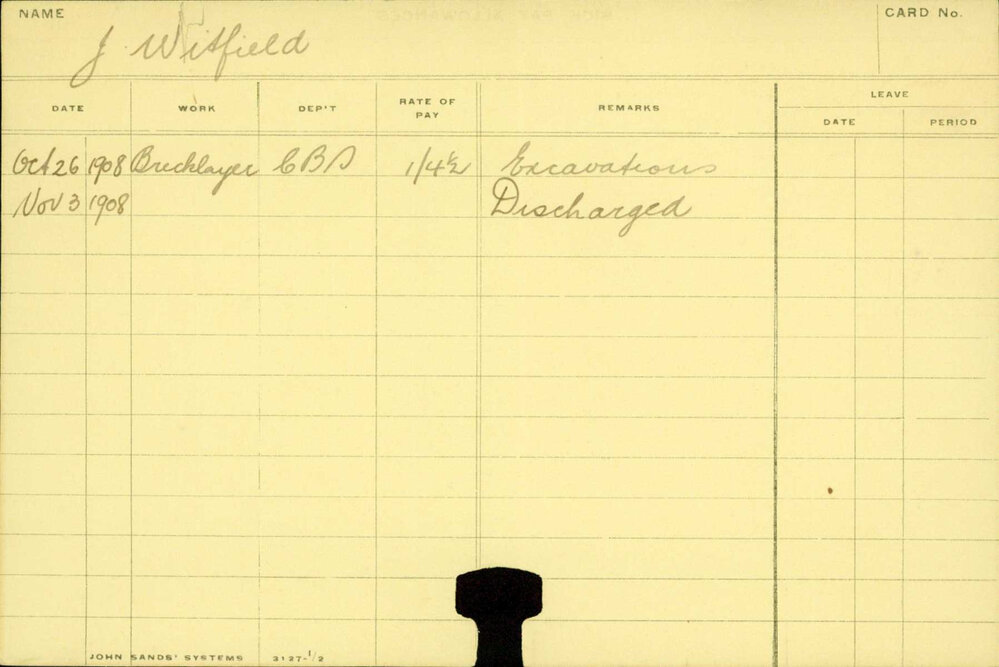 NAME
CARD No.
J Witfield
DATE WORK DEP'T RATE OF PAY REMARKS LEAVE
DATE PERIOD
Oct 26 1908 Bricklayer CBS 1/4½ Excavations
Nov 3 1908 Discharged
JOHN SANDS' SYSTEMS 3127-1/2